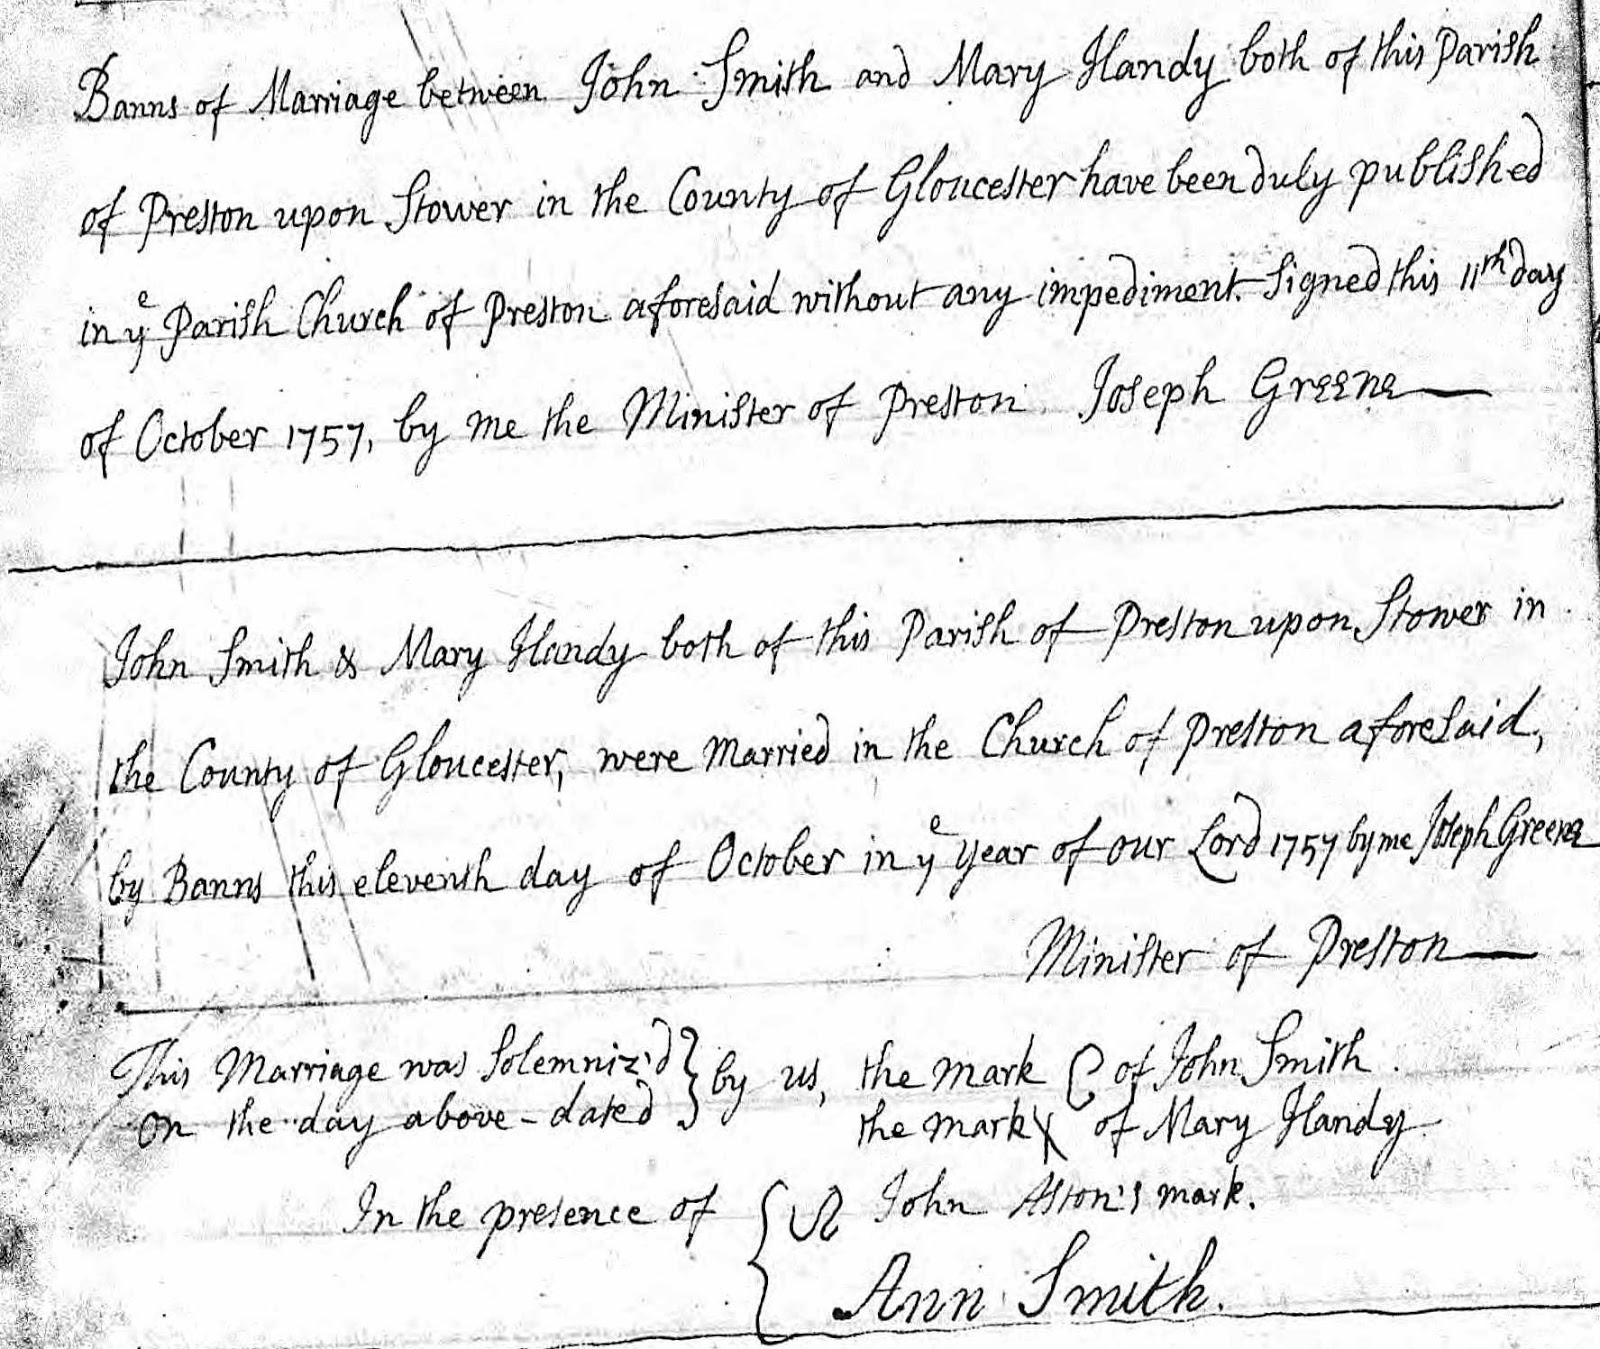 Banns of Marriage between John Smith and Mary Handy both of this Parish
of Preston upon Stower in the County of Gloucester have been duly published
in yᵉ Parish Church of Preston aforesaid without any impediment. Signed this 11th day
of October 1757, by me the Minister of Preston. Joseph Greene
John Smith & Mary Handy both of this Parish of Preston upon Stower in
the County of Gloucester, were married in the Church of Preston aforesaid,
by Banns this eleventh day of October in yᵉ year of our Lord 1757 by me Joseph Greene
Minister of Preston
This Marriage was Solemniz'd } by us, the mark C of John Smith.
on the day above-dated } the mark X of Mary Handy
In the presence of { John Aston's mark.
Ann Smith.